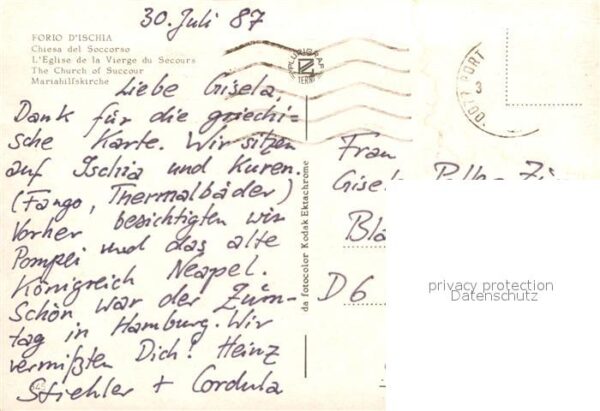 30. Juli 87
FORIO D'ISCHIA
Chiesa del Soccorso
L'Eglise de la Vierge du Secours
The Church of Succour
Mariahilfskirche
Liebe Gisela,
Dank für die griechi-
sche Karte. Wir sitzen
auf Ischia und Kuren.
(Fango, Thermalbäder)
Vorher besichtigten wir
Pompei und das alte
Königreich Neapel.
Schön war der Züm-
tag in Hamburg. Wir
vermißten Dich! Heinz
Stiehler + Cordula
da fotocolor Kodak Ektachrome
PLURIGRAF
TERNI
PORT
3
Frau
Gisela
Bla
D6
privacy protection
Datenschutz